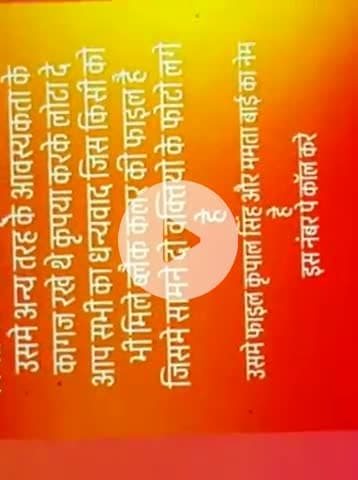 उसमे अन्य तरह के आवस्यकता के
कागज रखे थे कृपया करके लोटा दे
आप सभी का धन्यवाद जिस किसी को
भी मिले ब्लैक कलर की फाइल है
जिसमे सामने दो वक्तियो के फोटो लगे
है
उसमे फाइल कृपाल सिंह और ममता बाई का नेम
है
इस नंबर पे कॉल करे